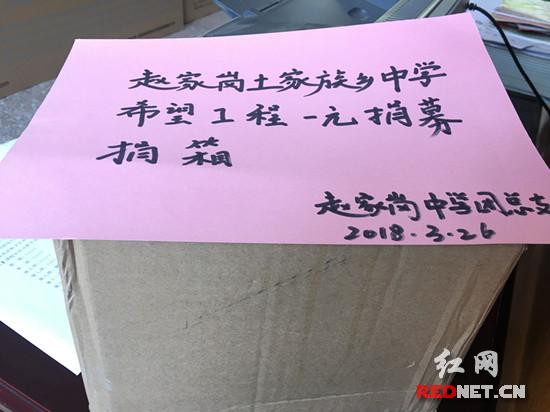 赵家岗土家族乡中学
希望工程一元捐募
捐箱
赵家岗中学团总支
2018.3.26
红网
REDNET.CN